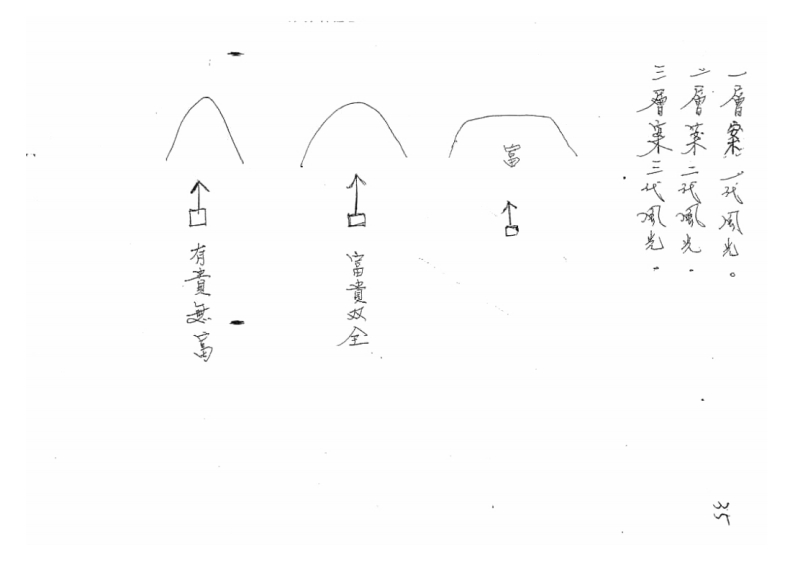 一層案一代風光。
二層案二代風光.
三層案三代風光.
富
富貴双全
有貴無富
35